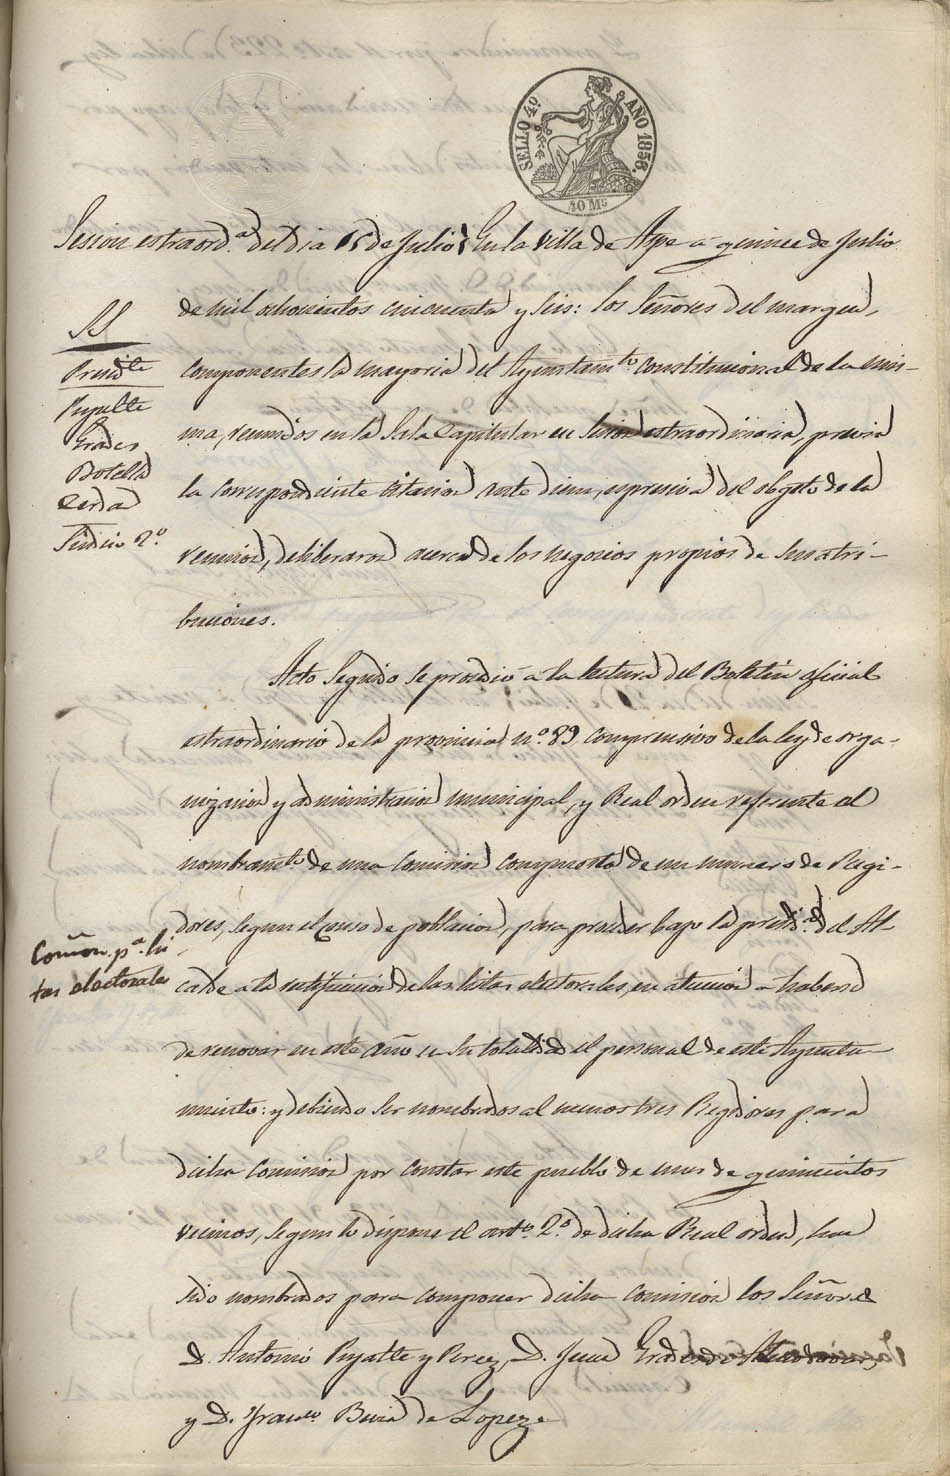 SELLO 4º AÑO 1856.
40 Ms
Sesion estraord.ª del dia 15 de Julio En la villa de Aspe a quince de Julio
de mil ochocientos cincuenta y seis: los Señores del margen,
SS
Presid.te
Puyalte
Erades
Botella
Cerdá
Sindico 2.º
componentes la mayoria del Ayuntam.to constitucional de la mis-
ma, reunidos en la Sala Capitular en Sesion estraordinaria, previa
la correspondiente citacion ante diem, espresiva del obgeto de la
reunion, deliberaron acerca de los negocios propios de sus atri-
buciones.
Acto Seguido se procedió a la lectura del Boletin oficial
estraordinario de la provincia nº. 89 comprensivo de la ley de orga-
nizacion y administracion municipal, y Real orden referente al
nombram.to de una Comision compuesta de un numero de Regi-
dores, segun el censo de poblacion, para proceder bajo la presid.ª del Al-
Comon. p.ª lis
tas electorales
calde a la rectificacion de las listas electorales, en atencion a haberse
de renovar en este año en su totalidad el personal de este Ayunta-
miento: y debiendo ser nombrados al menos tres Regidores para
dicha Comision por constar este pueblo de mas de quinientos
vecinos, segun lo dispone el arto. 2.º de dicha Real orden, han
sido nombrados para componer dicha Comision los Señores
D. Antonio Puyalte y Perez, D. Jose Erades de
y D. Franco de Lopez